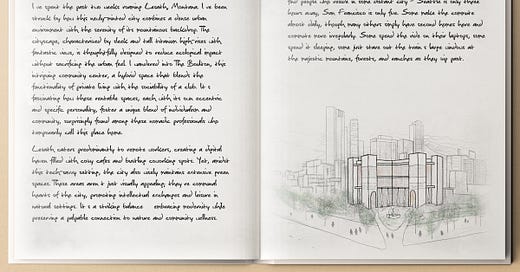 I've spent the past two weeks roaming Laraith, Montana. I've been
struck by how this newly-minted city combines a dense urban
environment with the serenity of its mountainous backdrop. The
cityscape, characterized by sleek and tall titanium high-rises with
fantastic views, is thoughtfully designed to reduce ecological impact
without sacrificing the urban feel. I wandered into The
intriguing community center, a hybrid space that blends the
functionality of private living with the sociability of a club. It's
fascinating how these rentable spaces, each with its own eccentric
and specific personality, foster a unique blend of individualism and
community, surprisingly found among these nomadic professionals who
temporarily call this place home.
caters predominantly to remote workers, creating a digital
haven filled with cosy cafes and bustling coworking spots. Yet, amidst
this tech-savvy setting, the city also wisely maintains extensive green
spaces. These areas aren't just visually appealing; they are communal
hearts of the city, promoting intellectual exchanges and leisure in
natural settings. It's a striking balance embracing modernity while
preserving a palpable connection to nature and community wellness.
few people who reside in some distant city - Seattle is only three
hours away, San Francisco is only five. Some make the commute
almost daily, though many others simply have second homes here and
commute more irregularly. Some spend the ride on their laptops, some
spend it sleeping, some just stare out the train's large windows at
the majestic mountains, forests, and ranches as they zip past.